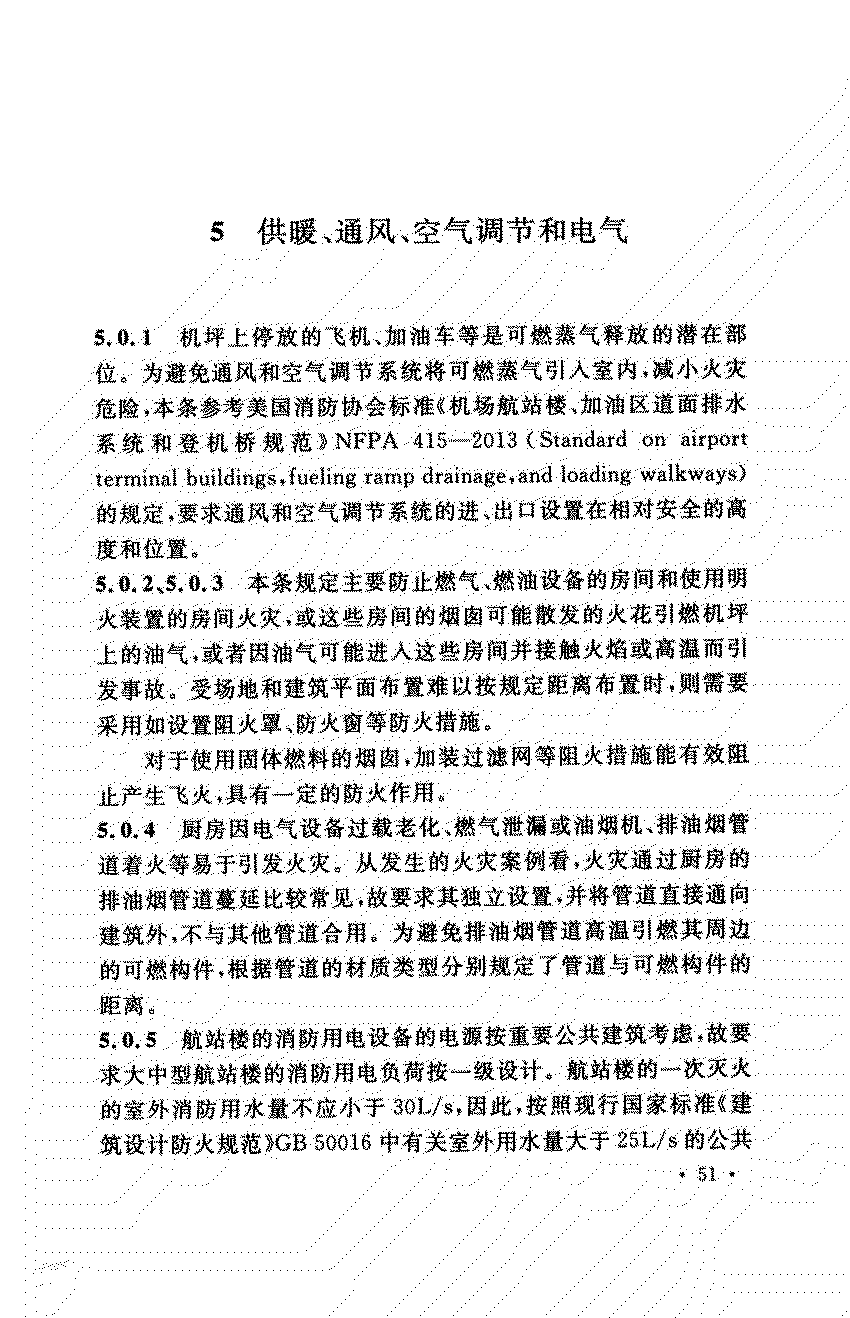 5 供暖、通风、空气调节和电气
5.0.1 机坪上停放的飞机、加油车等是可燃蒸气释放的潜在部
位。为避免通风和空气调节系统将可燃蒸气引入室内,减小火灾
危险,本条参考美国消防协会标准《机场航站楼、加油区道面排水
系统和登机桥规范》NFPA 415—2013(Standard on airport
terminal buildings,fueling ramp drainage,and loading walkways)
的规定,要求通风和空气调节系统的进、出口设置在相对安全的高
度和位置。
5.0.2、5.0.3 本条规定主要防止燃气、燃油设备的房间和使用明
火装置的房间火灾,或这些房间的烟囱可能散发的火花引燃机坪
上的油气,或者因油气可能进入这些房间并接触火焰或高温而引
发事故。受场地和建筑平面布置难以按规定距离布置时,则需要
采用如设置阻火罩、防火窗等防火措施。
对于使用固体燃料的烟囱,加装过滤网等阻火措施能有效阻
止产生飞火,具有一定的防火作用。
5.0.4 厨房因电气设备过载老化、燃气泄漏或油烟机、排油烟管
道着火等易于引发火灾。从发生的火灾案例看,火灾通过厨房的
排油烟管道蔓延比较常见,故要求其独立设置,并将管道直接通向
建筑外,不与其他管道合用。为避免排油烟管道高温引燃其周边
的可燃构件,根据管道的材质类型分别规定了管道与可燃构件的
距离。
5.0.5 航站楼的消防用电设备的电源按重要公共建筑考虑,故要
求大中型航站楼的消防用电负荷按一级设计。航站楼的一次灭火
的室外消防用水量不应小于30L/s,因此,按照现行国家标准《建
筑设计防火规范》GB 50016 中有关室外用水量大于25L/s的公共
· 51 ·